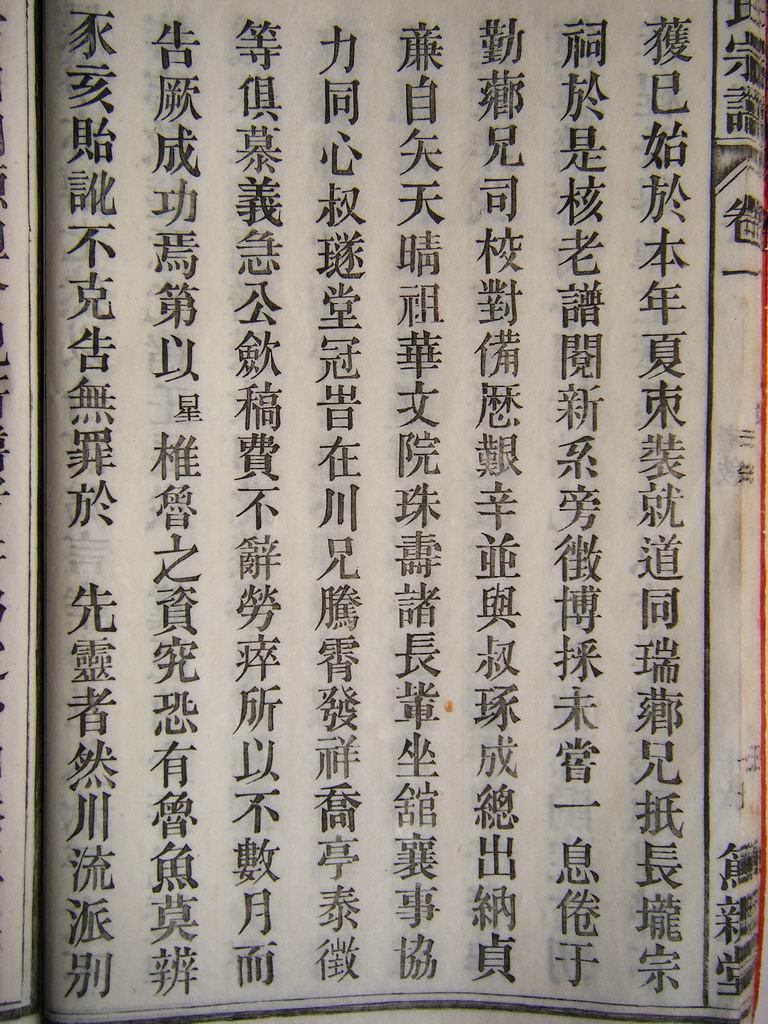 宗譜 卷一
獲已始於本年夏束裝就道同瑞薌兄抵長壠宗
祠於是核老譜閱新系旁徵博採未嘗一息倦于
勤薌兄司校對備歷艱辛並與叔琢成總出納貞
亷自矢天晴祖華文院珠壽諸長軰坐舘襄事協
力同心叔璲堂冠岩在川兄騰霄發祥喬亭泰徵
等俱慕義急公斂稿費不辭勞瘁所以不數月而
告厥成功焉第以星椎魯之資究恐有魯魚莫辨
豕亥貽訛不克告無罪於 先靈者然川流派別